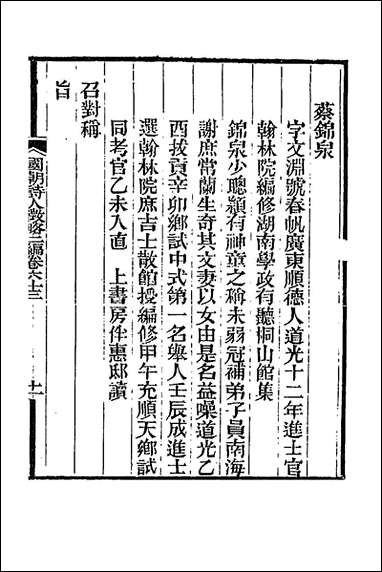 蔡錦泉
字文淵號春帆廣東順德人道光十二年進士官
翰林院編修湖南學政有聽桐山館集
錦泉少聰穎有神童之稱未弱冠補弟子員南海
謝庶常蘭生奇其文妻以女由是名益噪道光乙
酉拔貢辛卯鄉試中式第一名舉人壬辰成進士
選翰林院庶吉士散館授編修甲午充順天鄉試
同考官乙未入直　上書房伴惠邸讀
召對稱
旨
國朝詩人徵略二編卷六十三
十一